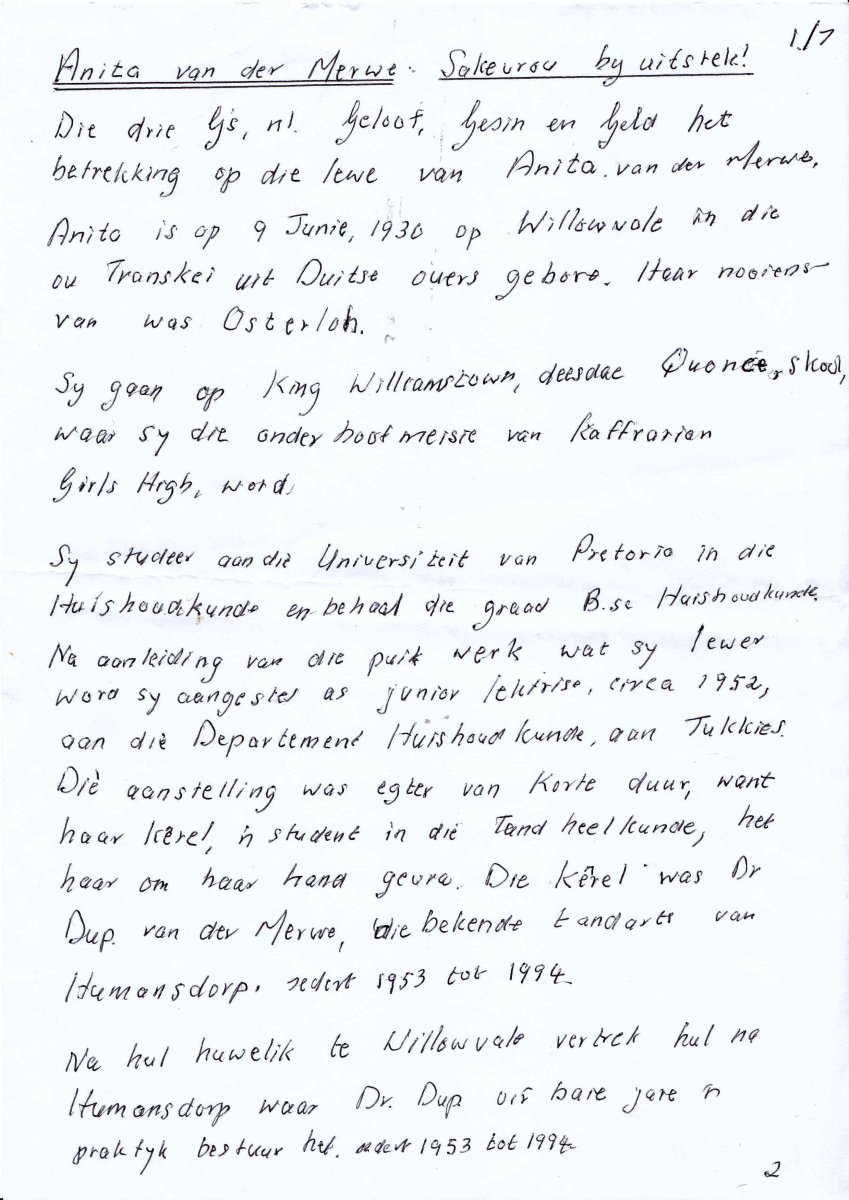 1/7
Anita van der Merwe. Sakevrou by uitstek!
Die drie G's, nl. Geloof, Gesin en Geld het
betrekking op die lewe van Anita van der Merwe.
Anita is op 9 Junie, 1930 op Willowvale in die
ou Transkei uit Duitse ouers gebore. Haar nooiens-
van was Osterloh.
Sy gaan op King Williamstown, deesdae Quonce, skool,
waar sy die onderhoofmeisie van Kaffrarian
Girls High, word.
Sy studeer aan die Universiteit van Pretoria in die
Huishoudkunde en behaal die graad B.sc Huishoudkunde.
Na aanleiding van die puik werk wat sy lewer
word sy aangestel as junior lektrise, circa 1952,
aan diè Departement Huishoudkunde, aan Tukkies.
Diè aanstelling was egter van korte duur, want
haar kêrel, 'n student in die Tandheelkunde, het
haar om haar hand gevra. Die kêrel was Dr
Dup. van der Merwe, die bekende tandarts van
Humansdorp. sedert 1953 tot 1994
Na hul huwelik te Willowvale vertrek hul na
Humansdorp waar Dr. Dup vir baie jare 'n
praktyk bestuur het. sedert 1953 tot 1994
2